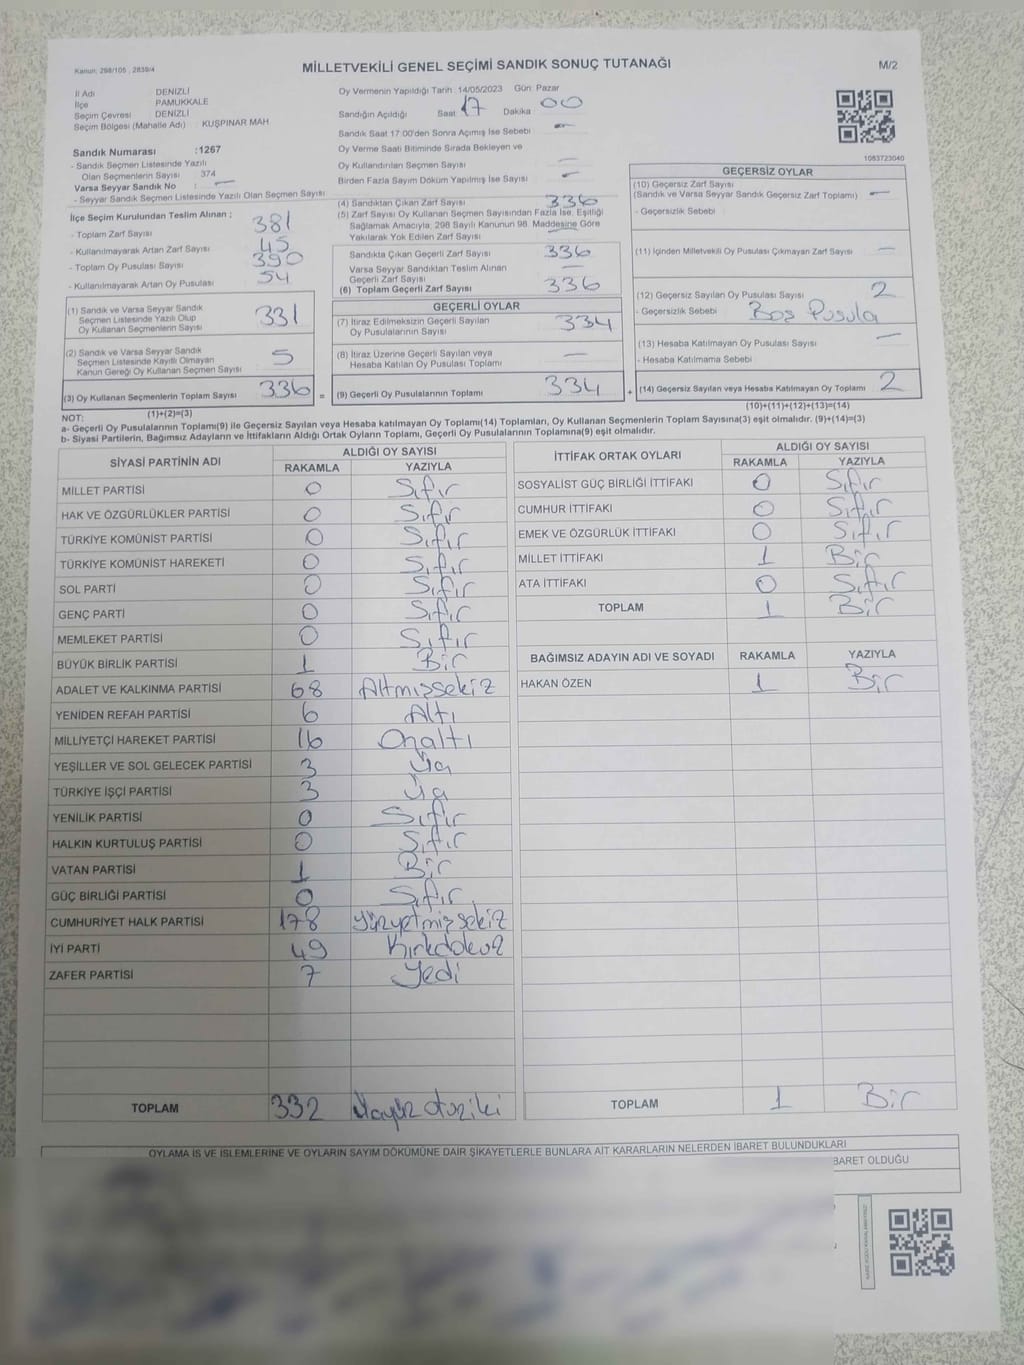 Kanun: 298/105 , 2839/4
MİLLETVEKİLİ GENEL SEÇİMİ SANDIK SONUÇ TUTANAĞI
M/2
İl Adı DENİZLİ
İlçe PAMUKKALE
Seçim Çevresi DENİZLİ
Seçim Bölgesi (Mahalle Adı) KUŞPINAR MAH
Sandık Numarası :1267
- Sandık Seçmen Listesinde Yazılı
Olan Seçmenlerin Sayısı 374
Varsa Seyyar Sandık No : —
- Seyyar Sandık Seçmen Listesinde Yazılı Olan Seçmen Sayısı
İlçe Seçim Kurulundan Teslim Alınan ;
- Toplam Zarf Sayısı 381
- Kullanılmayarak Artan Zarf Sayısı 45
- Toplam Oy Pusulası Sayısı 390
- Kullanılmayarak Artan Oy Pusulası 54
(1) Sandık ve Varsa Seyyar Sandık
Seçmen Listesinde Yazılı Olup
Oy Kullanan Seçmenlerin Sayısı 331
(2) Sandık ve Varsa Seyyar Sandık
Seçmen Listesinde Kayıtlı Olmayan
Kanun Gereği Oy Kullanan Seçmen Sayısı 5
(3) Oy Kullanan Seçmenlerin Toplam Sayısı 336 =
(1)+(2)=(3)
Oy Vermenin Yapıldığı Tarih :14/05/2023 Gün: Pazar
Sandığın Açıldığı Saat 17 Dakika 00
Sandık Saat 17:00'den Sonra Açılmış İse Sebebi —
Oy Verme Saati Bitiminde Sırada Bekleyen ve
Oy Kullandırılan Seçmen Sayısı —
Birden Fazla Sayım Döküm Yapılmış İse Sayısı —
(4) Sandıktan Çıkan Zarf Sayısı 336
(5) Zarf Sayısı Oy Kullanan Seçmen Sayısından Fazla İse, Eşitliği
Sağlamak Amacıyla, 298 Sayılı Kanunun 98. Maddesine Göre
Yakılarak Yok Edilen Zarf Sayısı —
Sandıkta Çıkan Geçerli Zarf Sayısı 336
Varsa Seyyar Sandıktan Teslim Alınan
Geçerli Zarf Sayısı —
(6) Toplam Geçerli Zarf Sayısı 336
GEÇERLİ OYLAR
(7) İtiraz Edilmeksizin Geçerli Sayılan
Oy Pusulalarının Sayısı 334
(8) İtiraz Üzerine Geçerli Sayılan veya
Hesaba Katılan Oy Pusulası Toplamı —
(9) Geçerli Oy Pusulalarının Toplamı 334 +
1083723040
GEÇERSİZ OYLAR
(10) Geçersiz Zarf Sayısı
(Sandık ve Varsa Seyyar Sandık Geçersiz Zarf Toplamı) —
- Geçersizlik Sebebi
(11) İçinden Milletvekili Oy Pusulası Çıkmayan Zarf Sayısı —
(12) Geçersiz Sayılan Oy Pusulası Sayısı 2
- Geçersizlik Sebebi Boş Pusula
(13) Hesaba Katılmayan Oy Pusulası Sayısı —
- Hesaba Katılmama Sebebi
(14) Geçersiz Sayılan veya Hesaba Katılmayan Oy Toplamı 2
(10)+(11)+(12)+(13)=(14)
NOT:
a- Geçerli Oy Pusulalarının Toplamı(9) ile Geçersiz Sayılan veya Hesaba Katılmayan Oy Toplamı(14) Toplamları, Oy Kullanan Seçmenlerin Toplam Sayısına(3) eşit olmalıdır. (9)+(14)=(3)
b- Siyasi Partilerin, Bağımsız Adayların ve İttifakların Aldığı Ortak Oyların Toplamı, Geçerli Oy Pusulalarının Toplamına(9) eşit olmalıdır.
SİYASİ PARTİNİN ADI ALDIĞI OY SAYISI
RAKAMLA YAZIYLA
MİLLET PARTİSİ 0 Sıfır
HAK VE ÖZGÜRLÜKLER PARTİSİ 0 Sıfır
TÜRKİYE KOMÜNİST PARTİSİ 0 Sıfır
TÜRKİYE KOMÜNİST HAREKETİ 0 Sıfır
SOL PARTİ 0 Sıfır
GENÇ PARTİ 0 Sıfır
MEMLEKET PARTİSİ 0 Sıfır
BÜYÜK BİRLİK PARTİSİ 1 Bir
ADALET VE KALKINMA PARTİSİ 68 Altmışsekiz
YENİDEN REFAH PARTİSİ 6 Altı
MİLLİYETÇİ HAREKET PARTİSİ 16 Onaltı
YEŞİLLER VE SOL GELECEK PARTİSİ 3 Üç
TÜRKİYE İŞÇİ PARTİSİ 3 Üç
YENİLİK PARTİSİ 0 Sıfır
HALKIN KURTULUŞ PARTİSİ 0 Sıfır
VATAN PARTİSİ 1 Bir
GÜÇ BİRLİĞİ PARTİSİ 0 Sıfır
CUMHURİYET HALK PARTİSİ 178 Yüzyetmişsekiz
İYİ PARTİ 49 Kırkdokuz
ZAFER PARTİSİ 7 Yedi
TOPLAM 332
İTTİFAK ORTAK OYLARI ALDIĞI OY SAYISI
RAKAMLA YAZIYLA
SOSYALİST GÜÇ BİRLİĞİ İTTİFAKI 0 Sıfır
CUMHUR İTTİFAKI 0 Sıfır
EMEK VE ÖZGÜRLÜK İTTİFAKI 0 Sıfır
MİLLET İTTİFAKI 1 Bir
ATA İTTİFAKI 0 Sıfır
TOPLAM 1 Bir
BAĞIMSIZ ADAYIN ADI VE SOYADI RAKAMLA YAZIYLA
HAKAN ÖZEN 1 Bir
TOPLAM 1 Bir
OYLAMA İŞ VE İŞLEMLERİNE VE OYLARIN SAYIM DÖKÜMÜNE DAİR ŞİKAYETLERLE BUNLARA AİT KARARLARIN NELERDEN İBARET BULUNDUKLARI
BARET OLDUĞU